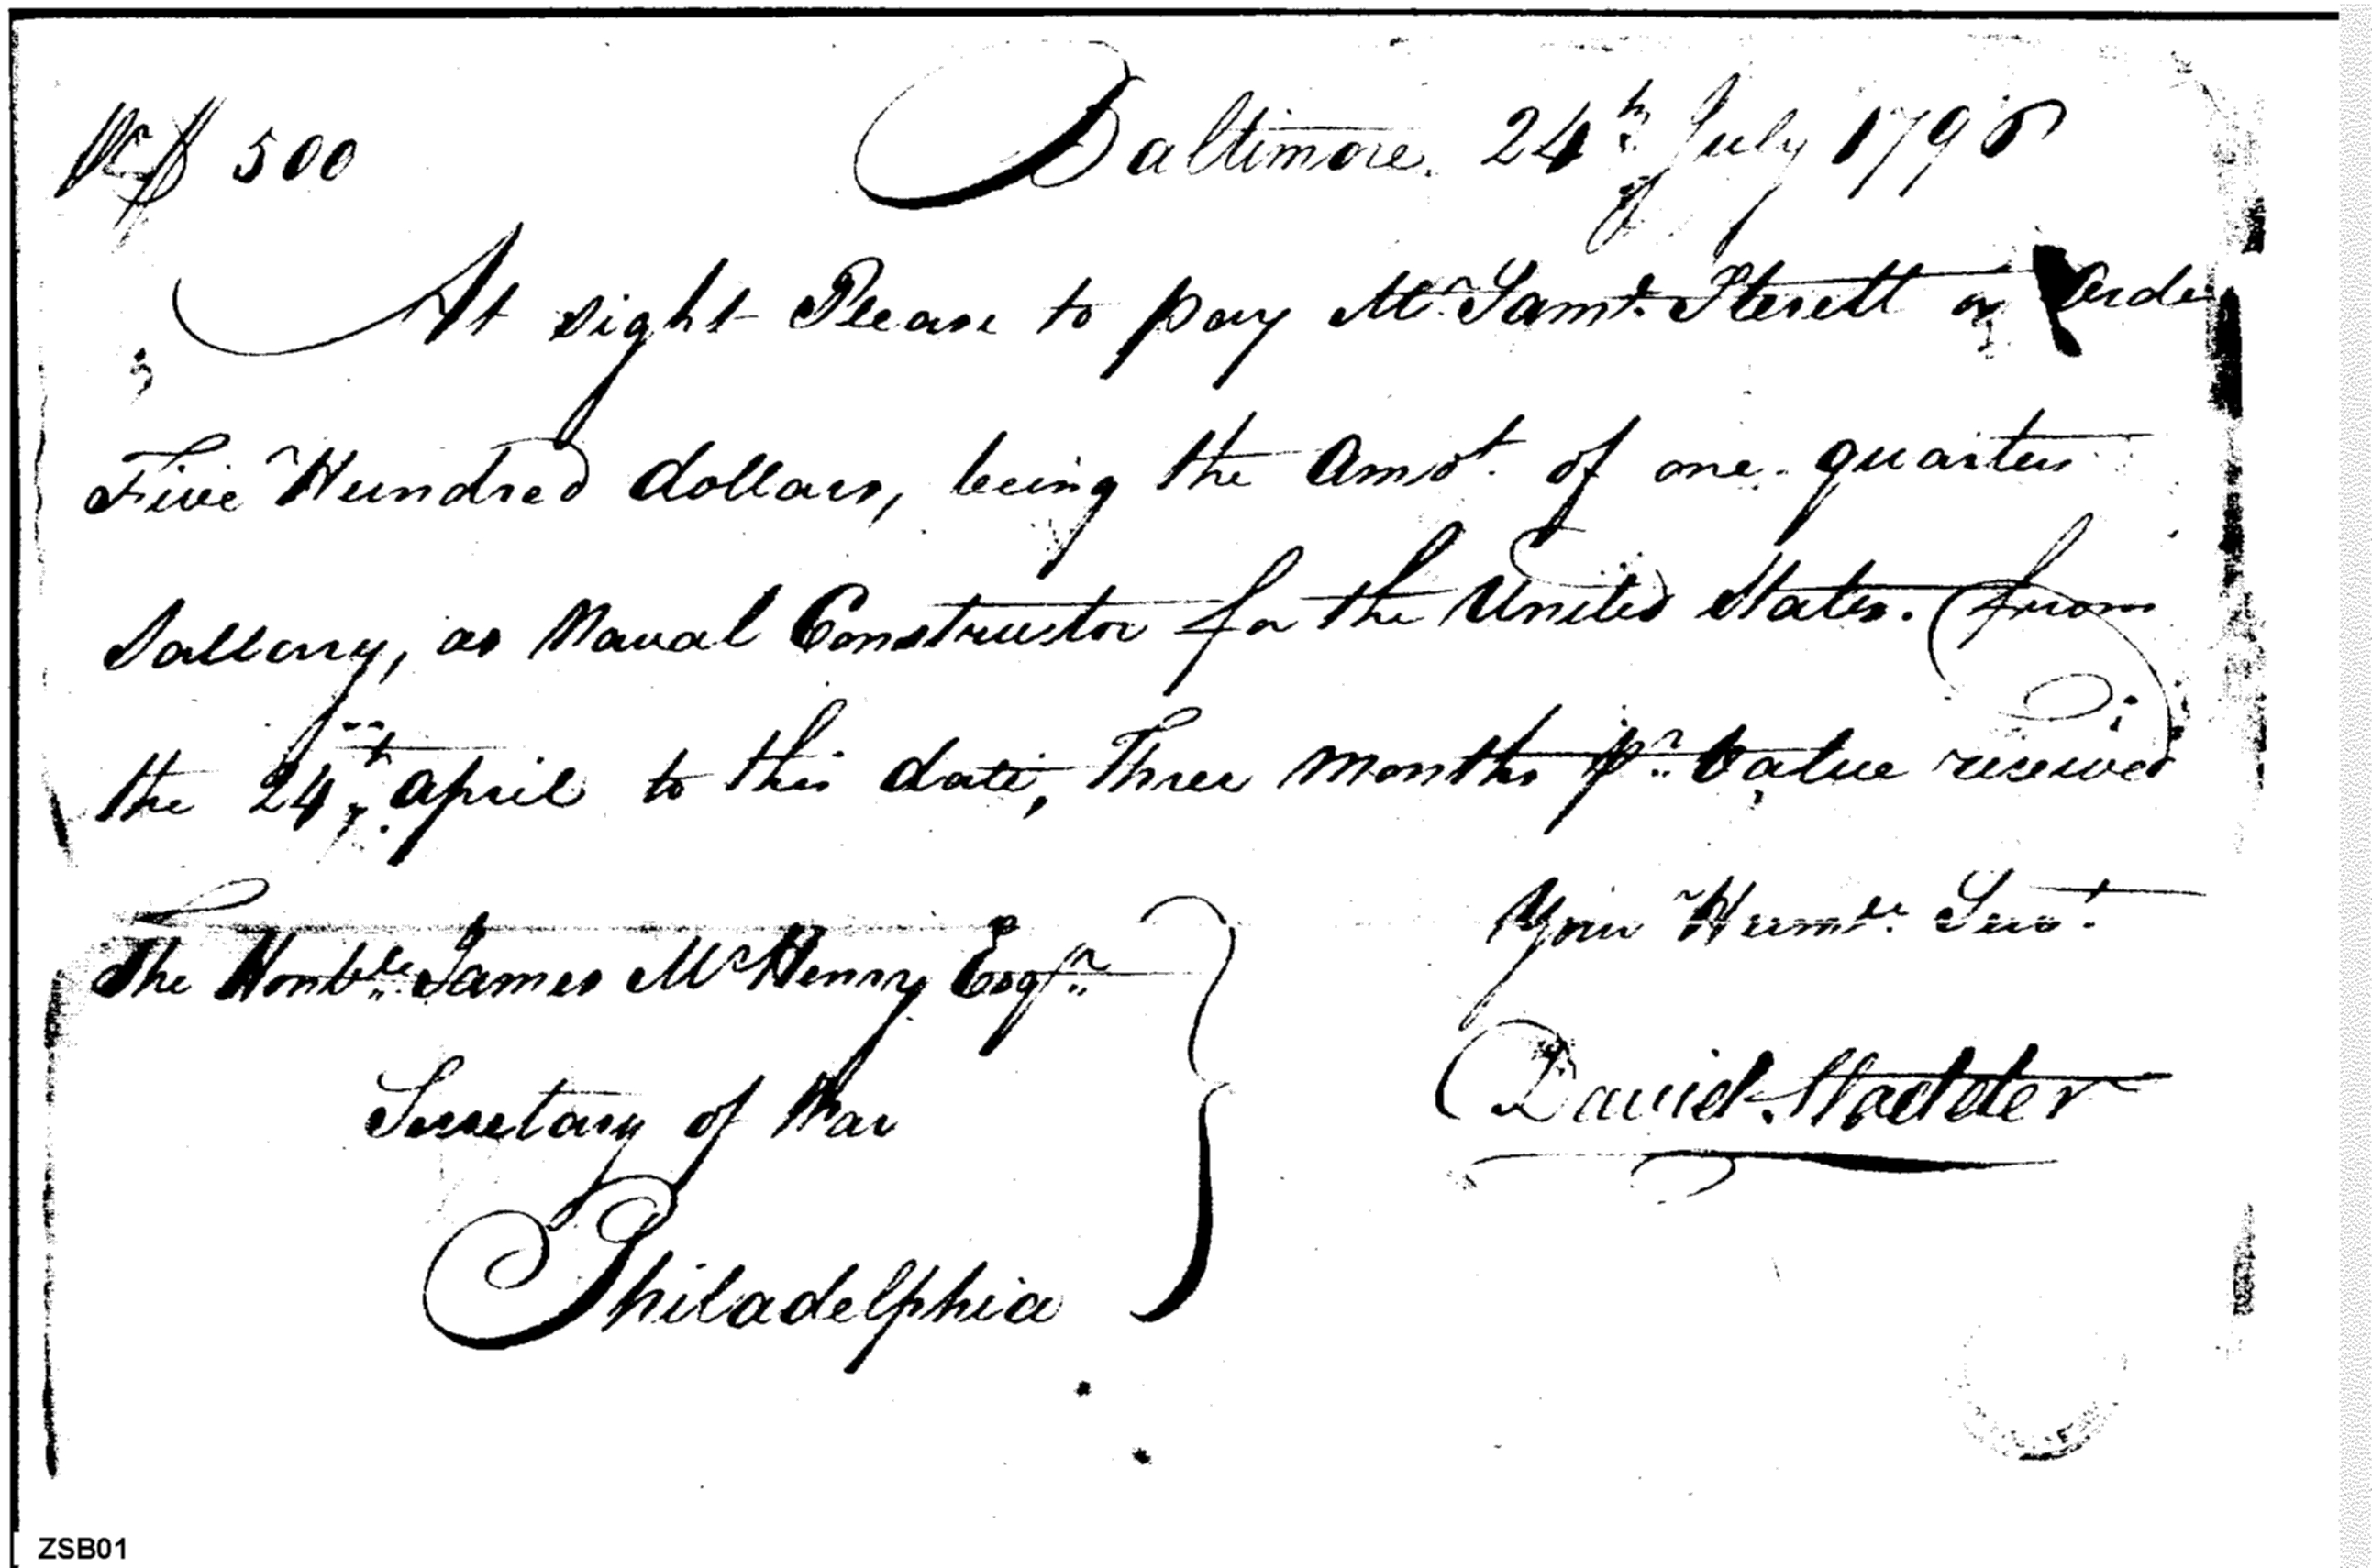 $ 500
Baltimore. 24th July 1798
At sight Please to pay Mr. Saml. Sterett or Order
Five Hundred dollars, being the Amot. of one quarters
Sallary, as Naval Constructor for the United States. from
the 24th. april to this date, Three months pr. Value received
Your Humle. Servt.
The Honble. James McHenry Esqr.
David Stodder
Secretary of War
Philadelphia
ZSB01